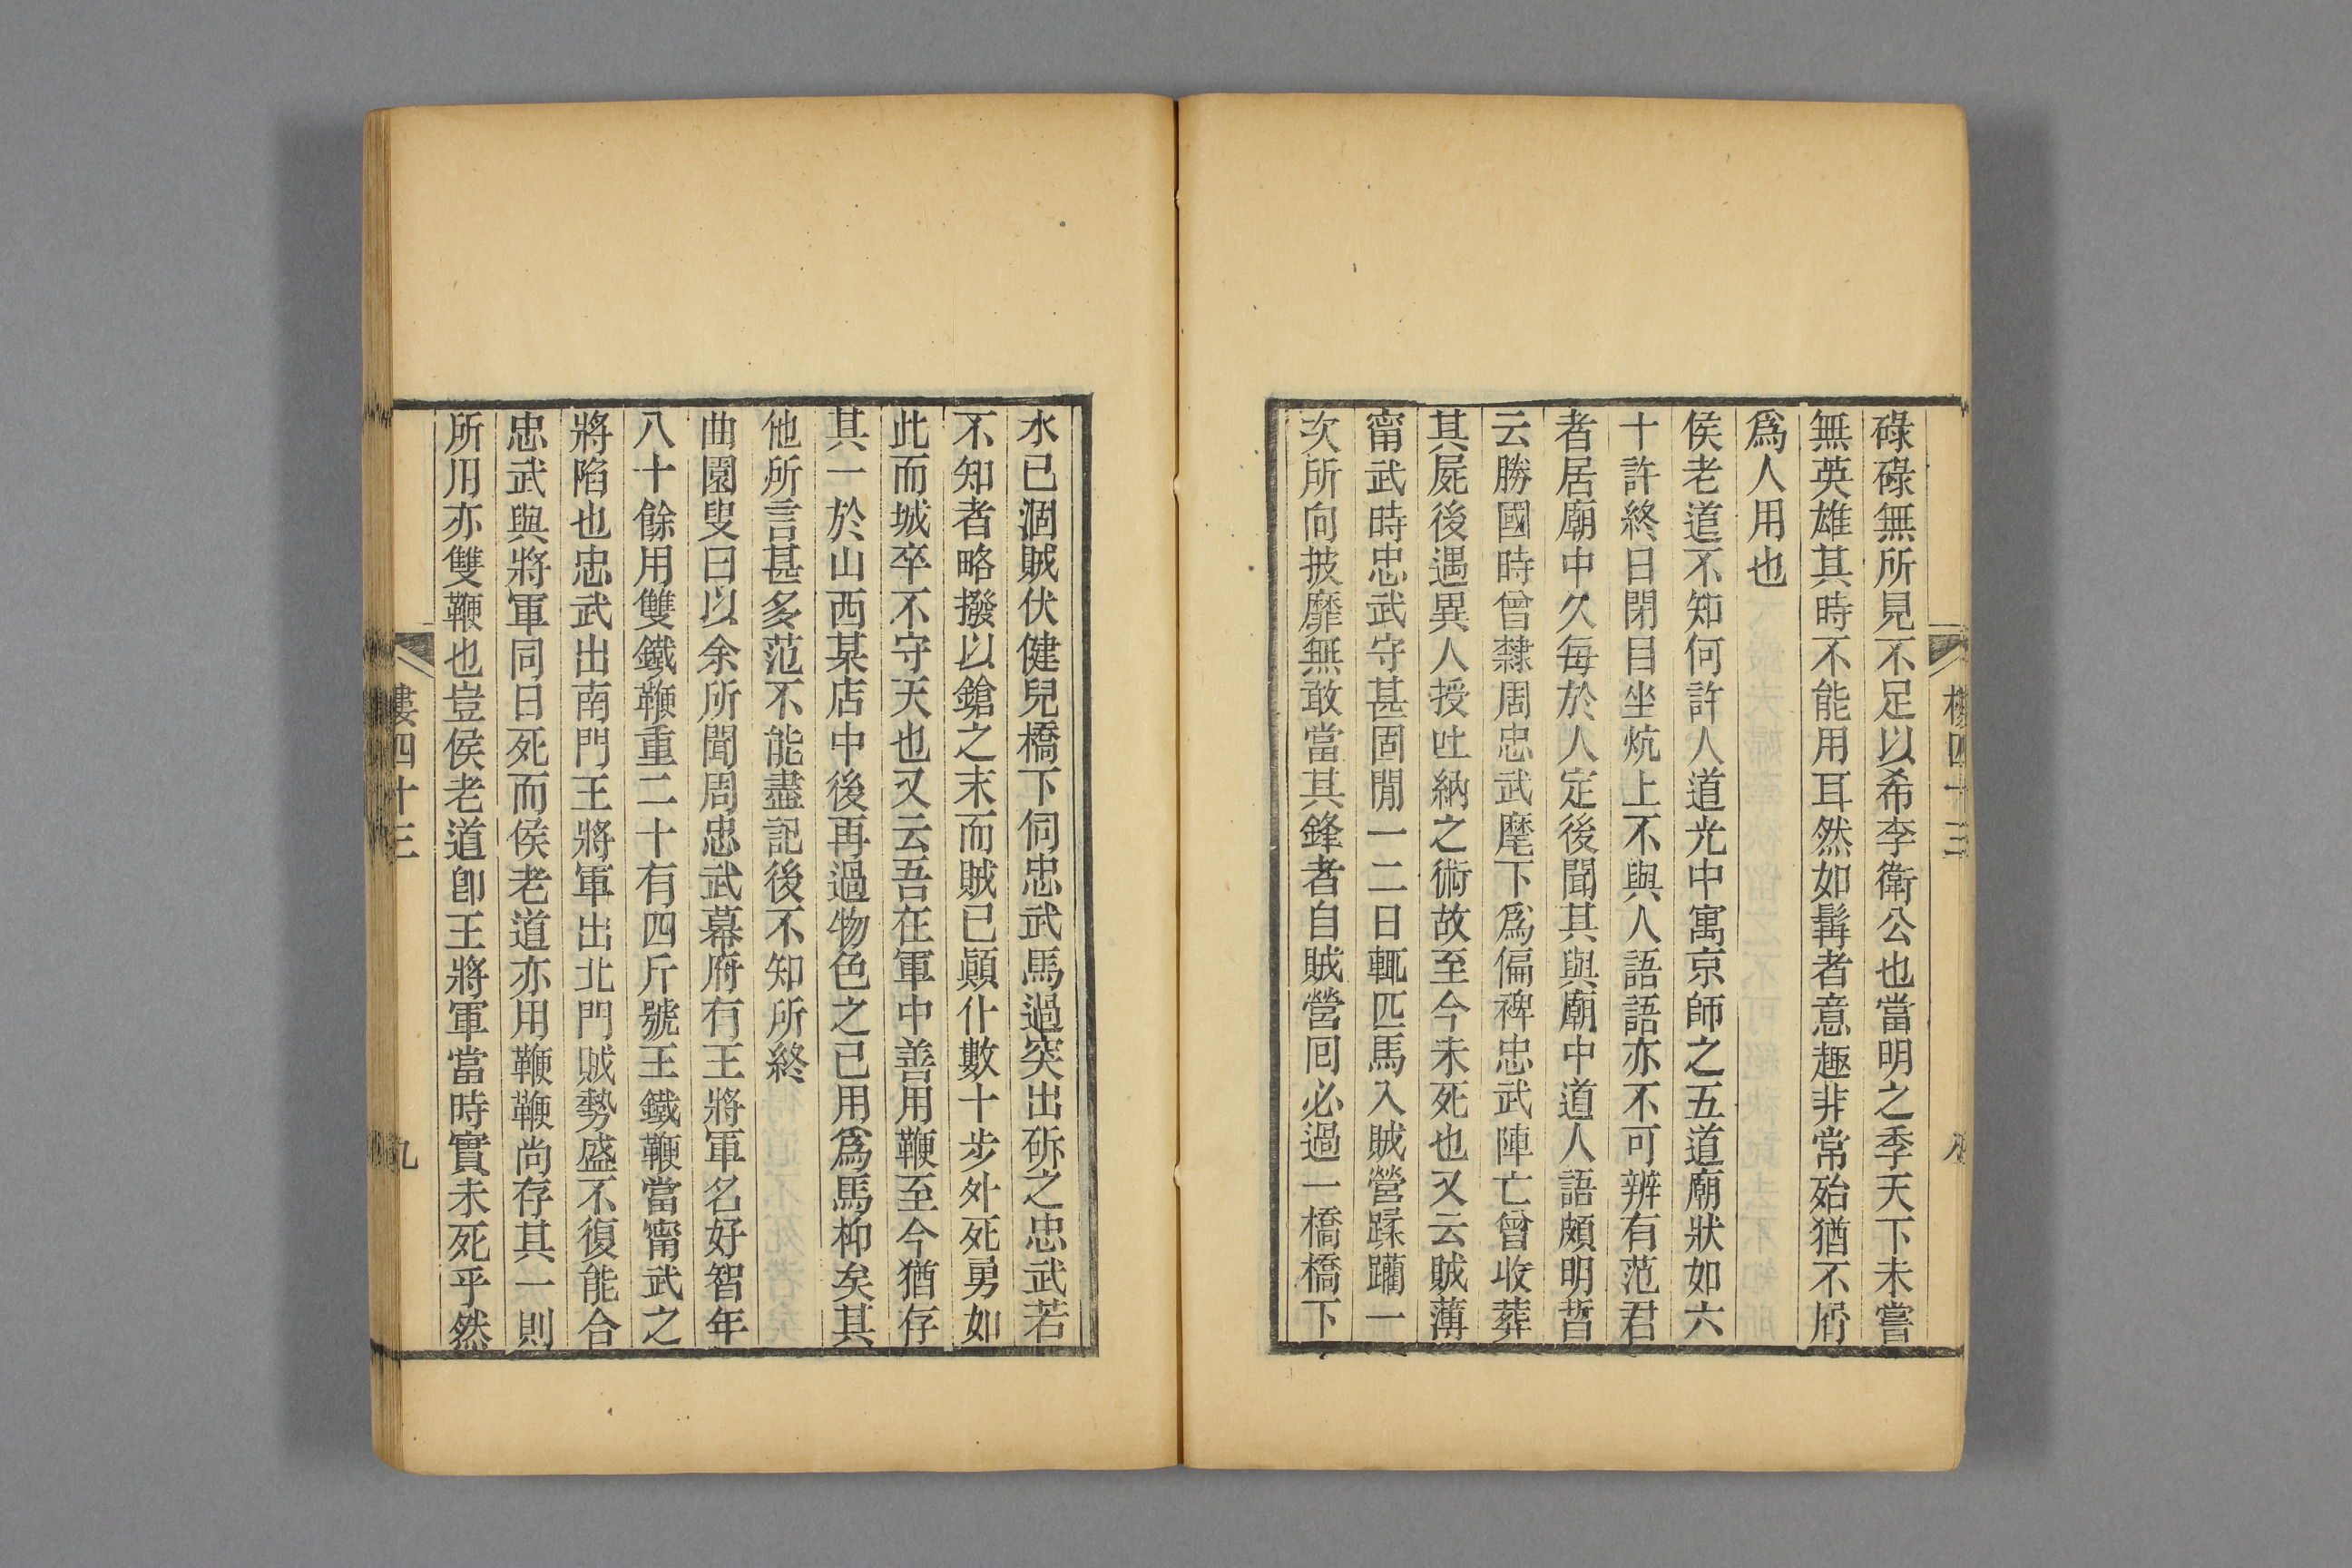 碌碌無所見不足以希李衛公也當明之季天下未嘗
無英雄其時不能用耳然如髯者意趣非常殆猶不屑
爲人用也
侯老道不知何許人道光中寓京師之五道廟狀如六
十許終日閉目坐炕上不與人語語亦不可辨有范君
者居廟中久每於人定後聞其與廟中道人語頗明晳
云勝國時曾隸周忠武麾下爲偏裨忠武陣亡曾收葬
其屍後遇異人授吐納之術故至今未死也又云賊薄
甯武時忠武守甚固閒一二日輒匹馬入賊營蹂躪一
次所向披靡無敢當其鋒者自賊營囘必過一橋橋下
水已涸賊伏健兒橋下伺忠武馬過突出斫之忠武若
不知者略撥以鎗之末而賊已顚仆數十步外死勇如
此而城卒不守天也又云吾在軍中善用鞭至今猶存
其一於山西某店中後再過物色之已用爲馬枊矣其
他所言甚多范不能盡記後不知所終
曲園叟曰以余所聞周忠武幕府有王將軍名好智年
八十餘用雙鐵鞭重二十有四斤號王鐵鞭當甯武之
將陷也忠武出南門王將軍出北門賊勢盛不復能合
忠武與將軍同日死而侯老道亦用鞭鞭尚存其一則
所用亦雙鞭也豈侯老道卽王將軍當時實未死乎然
四十三
九